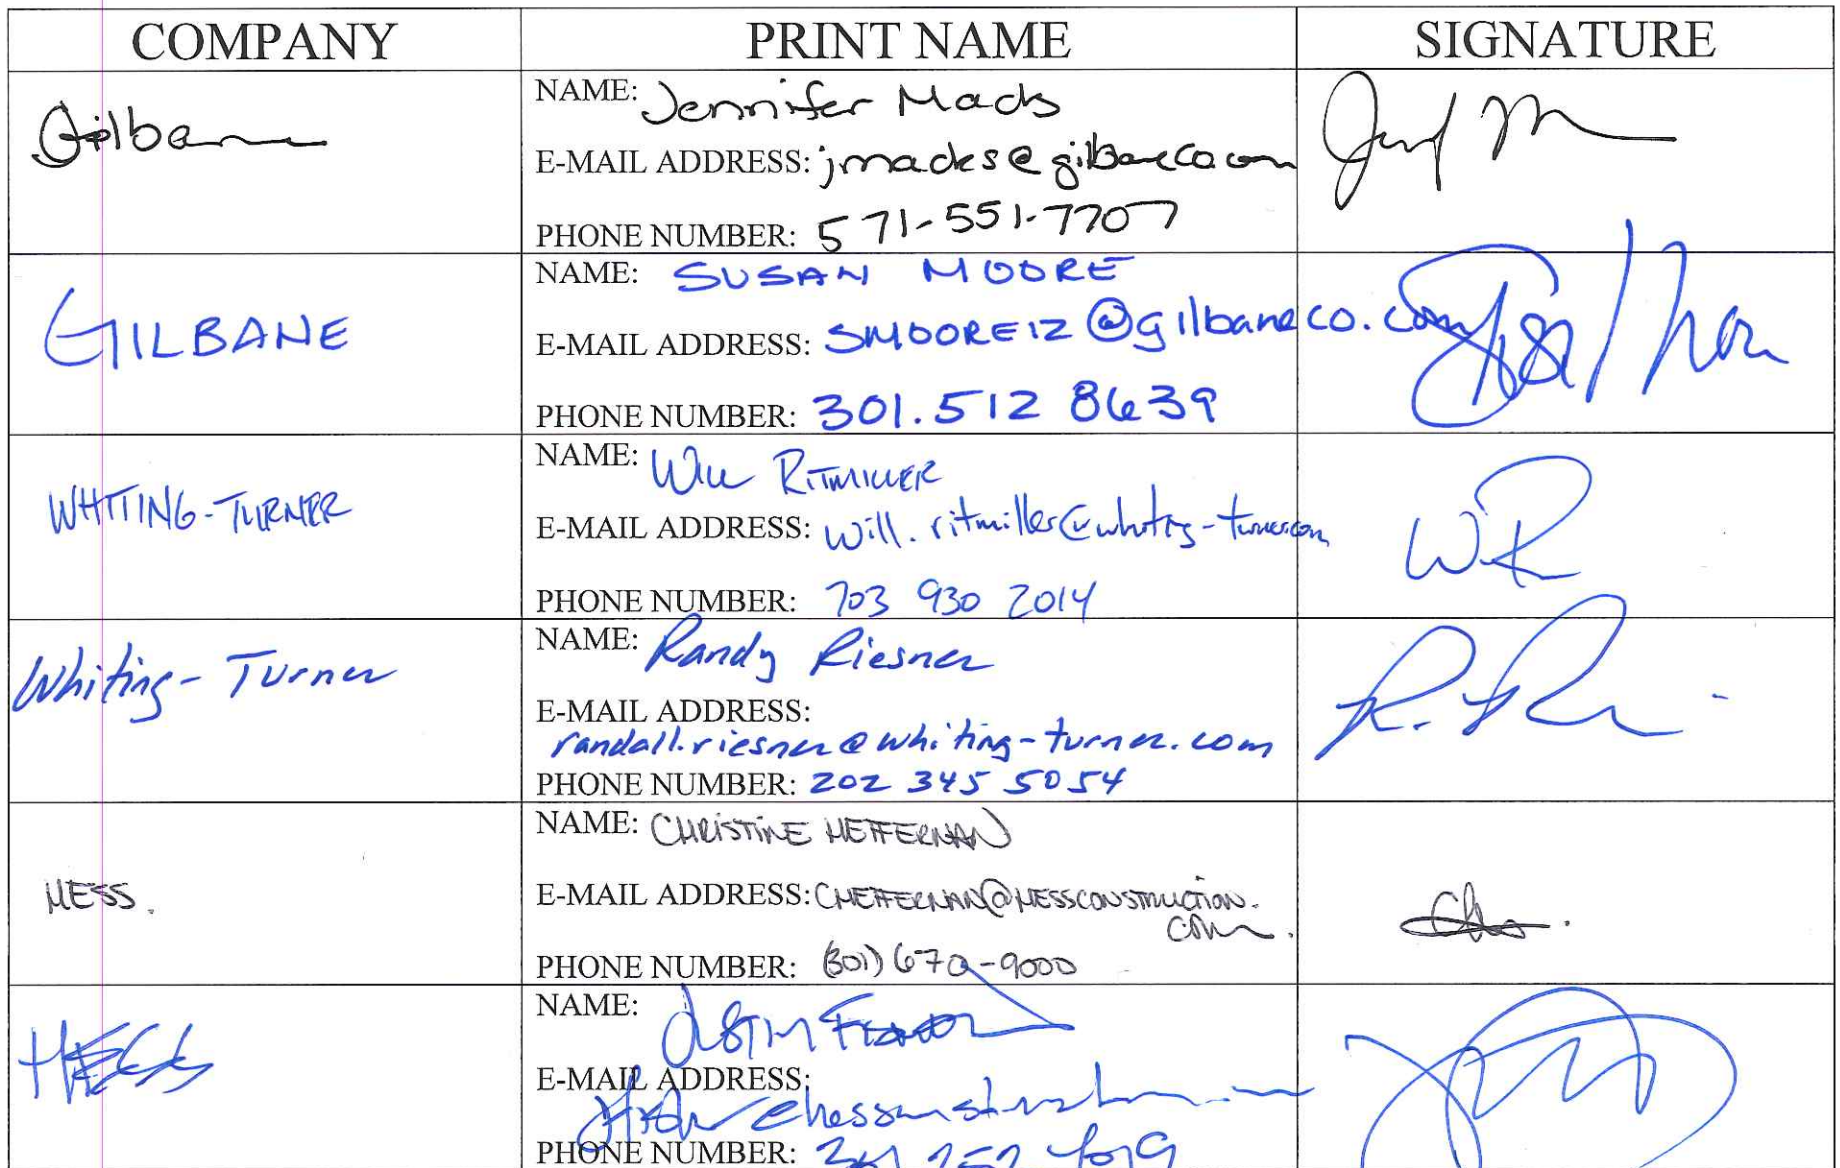 COMPANY PRINT NAME SIGNATURE
Gilbane
NAME: Jennifer Macks
E-MAIL ADDRESS: jmacks@gilbaneco.com
PHONE NUMBER: 571-551-7707
GILBANE
NAME: SUSAN MOORE
E-MAIL ADDRESS: SMOORE12@gilbaneco.com
PHONE NUMBER: 301.512 8639
WHITING-TURNER
NAME: WILL RITMILLER
E-MAIL ADDRESS: will.ritmiller@whiting-turner.com
PHONE NUMBER: 703 930 2014
WR
Whiting-Turner
NAME: Randy Riesner
E-MAIL ADDRESS:
randall.riesner@whiting-turner.com
PHONE NUMBER: 202 345 5054
HESS.
NAME: CHRISTINE HEFFERNAN
E-MAIL ADDRESS: CHEFFERNAN@HESSCONSTRUCTION.
COM.
PHONE NUMBER: (301) 670-9000
HESS
NAME:
E-MAIL ADDRESS:
PHONE NUMBER: